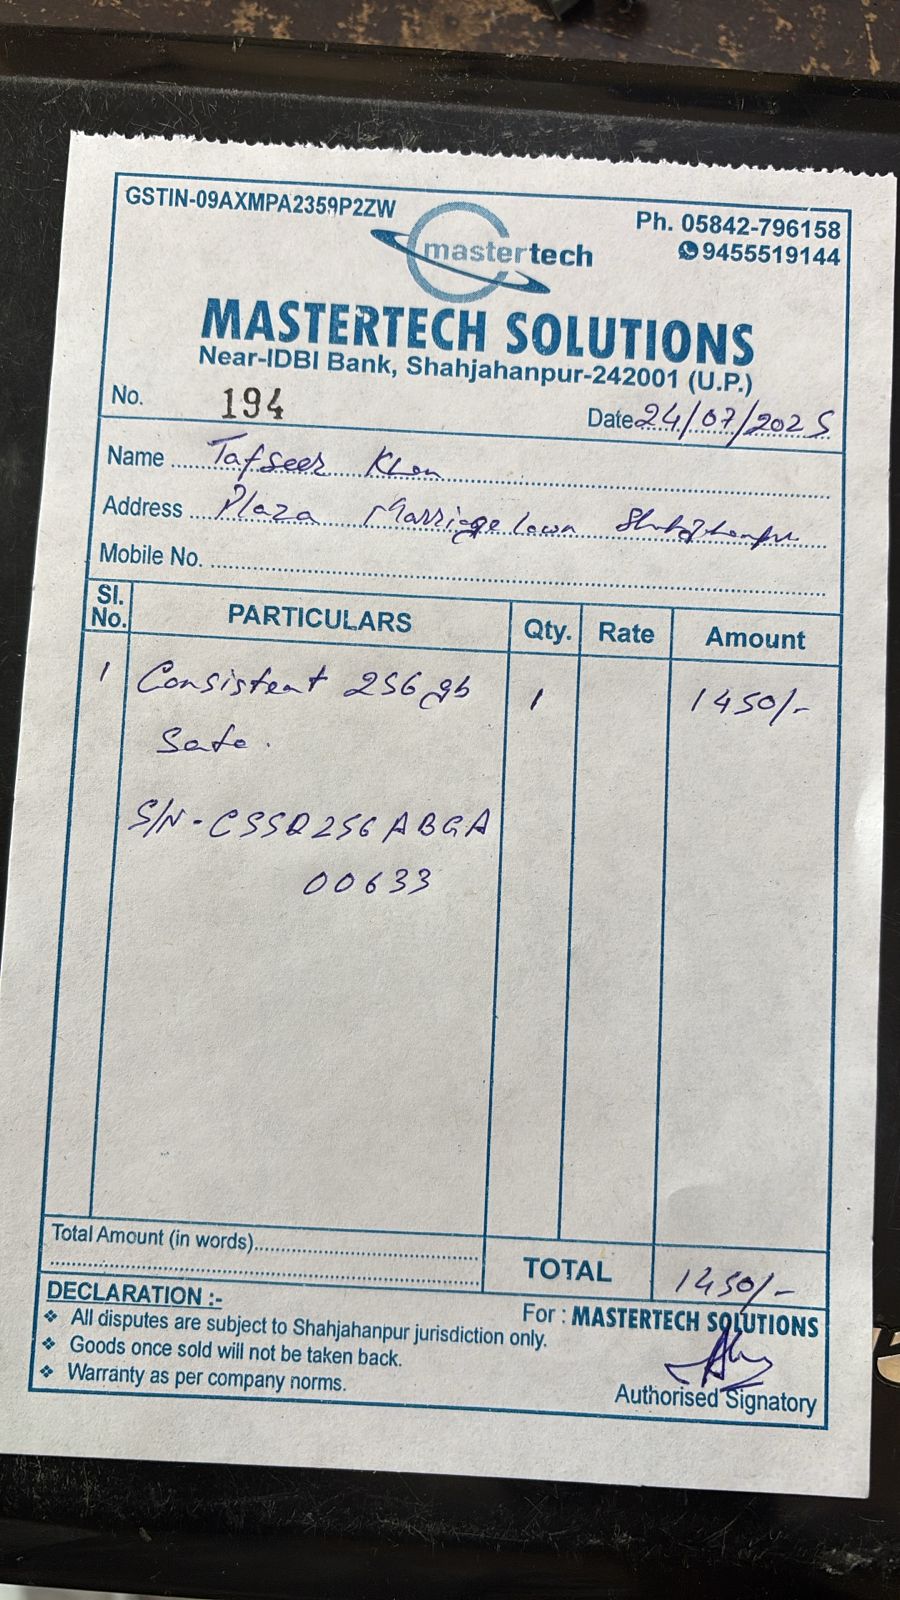 GSTIN-09AXMPA2359P2ZW
Ph. 05842-796158
9455519144
mastertech
MASTERTECH SOLUTIONS
Near-IDBI Bank, Shahjahanpur-242001 (U.P.)
No. 194 Date 24/07/2025
Name Tafseer Khan
Address Plaza Marriage Lawn Shahjahanpur
Mobile No.
Sl. No. PARTICULARS Qty. Rate Amount
1 Consistent 256 gb 1 1450/-
Sata.
S/N-CSSD256ABGA
00633
Total Amount (in words)
TOTAL 1450/-
DECLARATION :-
For : MASTERTECH SOLUTIONS
❖ All disputes are subject to Shahjahanpur jurisdiction only.
❖ Goods once sold will not be taken back.
❖ Warranty as per company norms.
Authorised Signatory